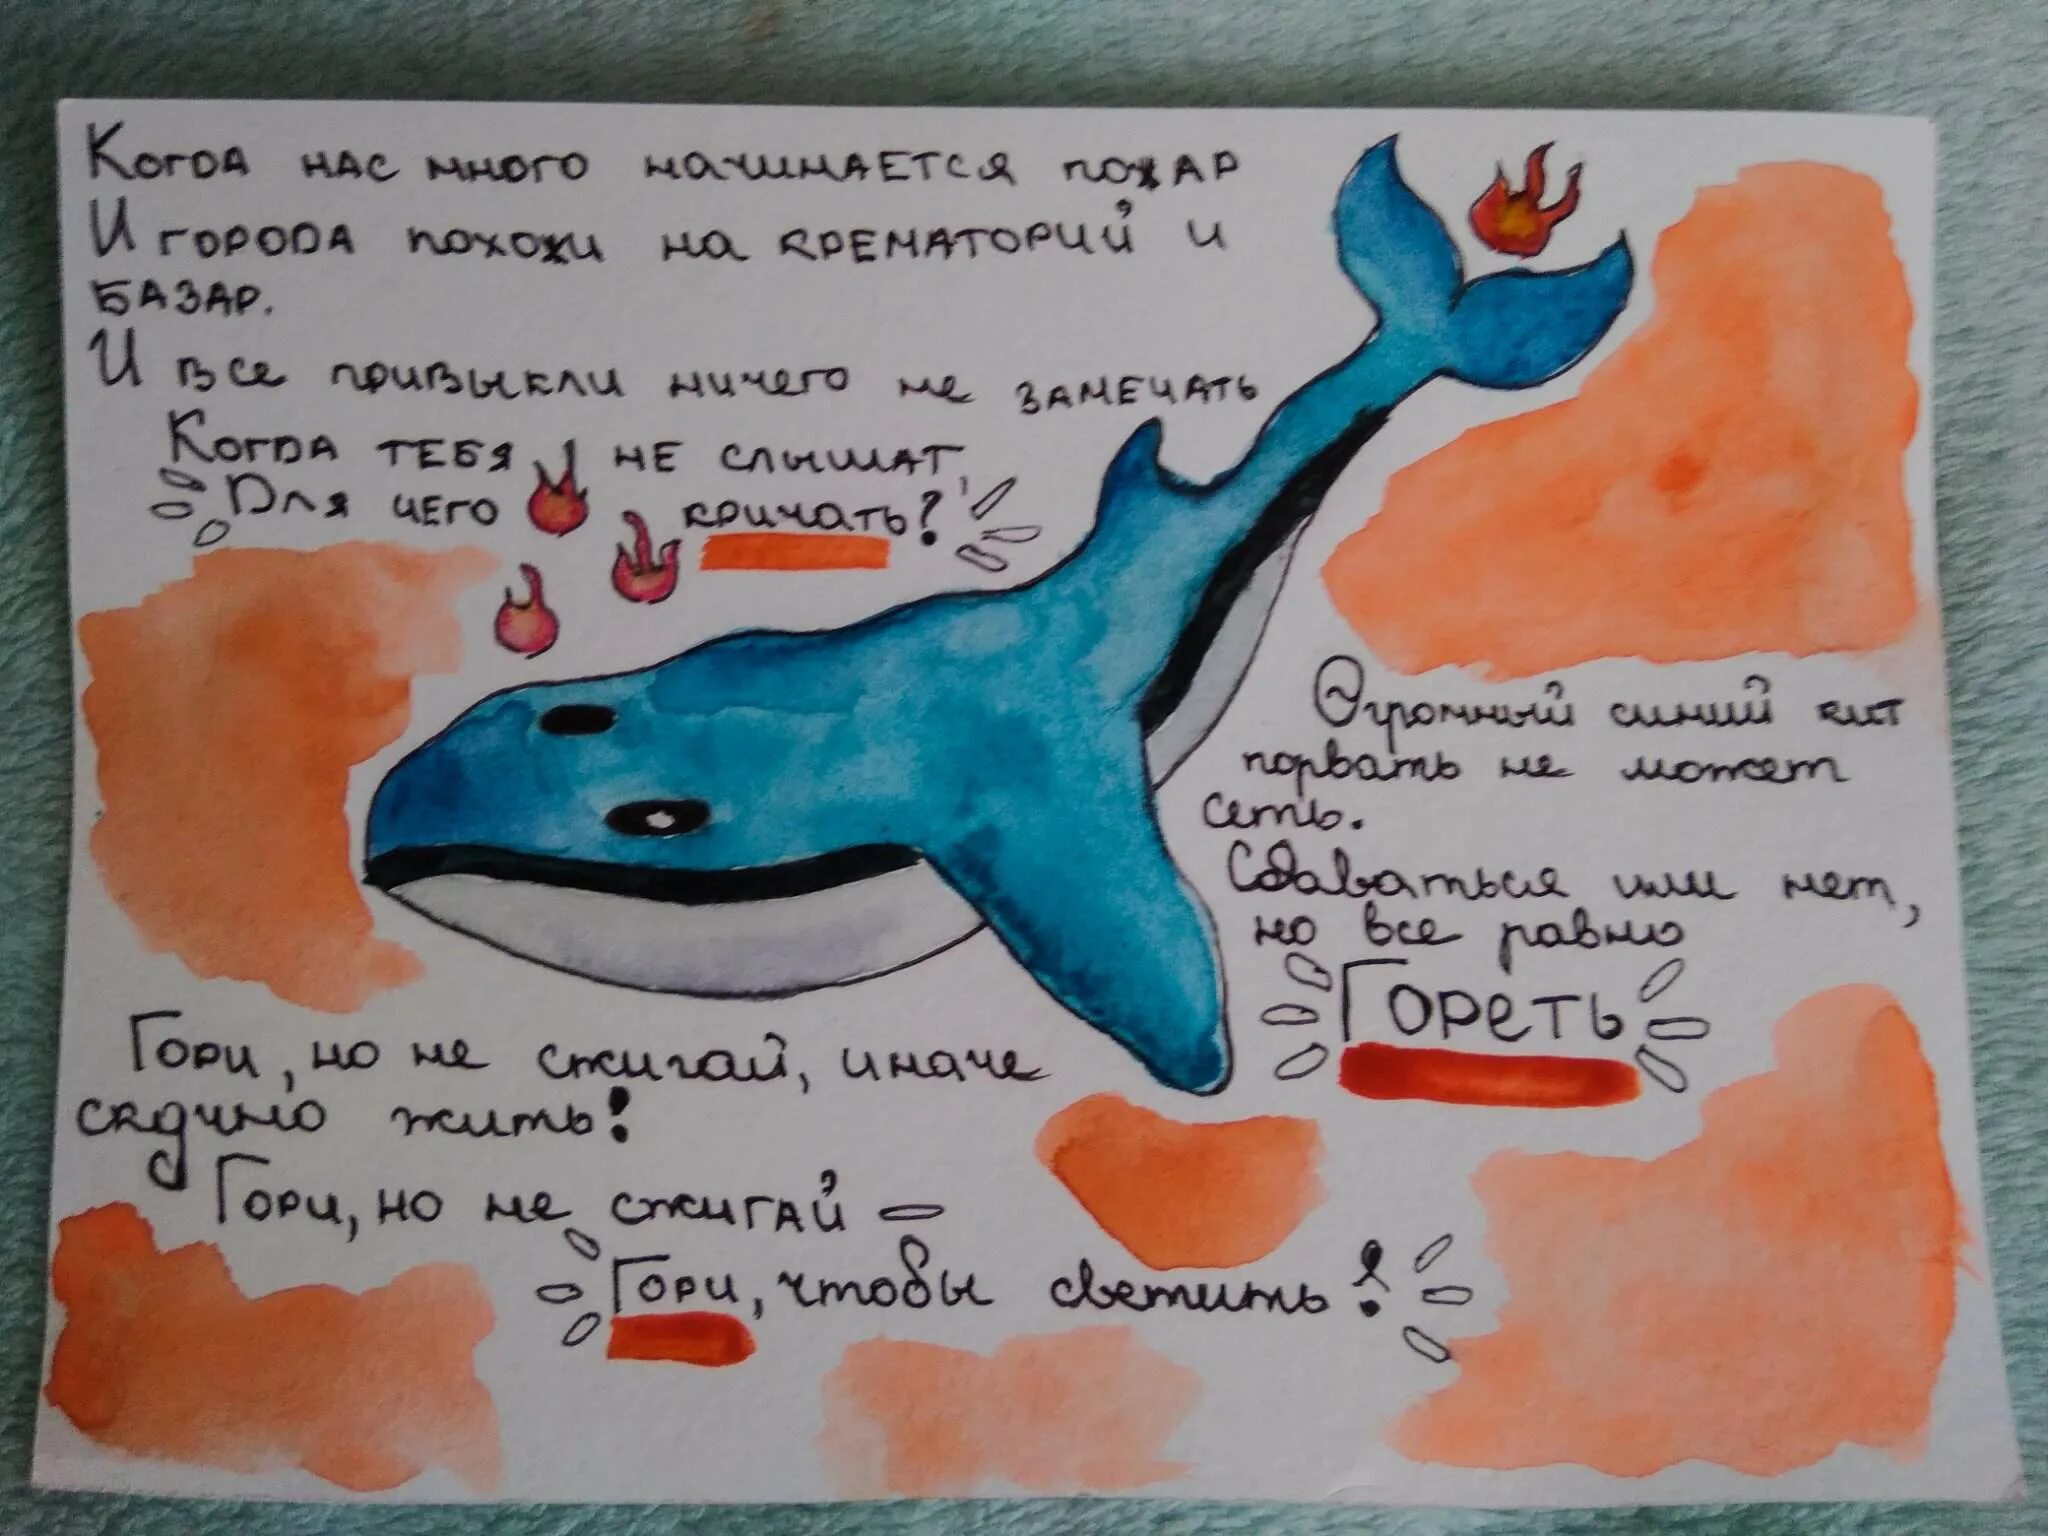 Когда нас много начинается пожар
И города похожи на крематорий и
базар.
И все привыкли ничего не замечать
Когда тебя не слышат,
Для чего кричать?
Огромный синий кит
порвать не может
сеть.
Сдаваться или нет,
но все равно
Гореть
Гори, но не сжигай, иначе
скучно жить!
Гори, но не сжигай –
Гори, чтобы светить!